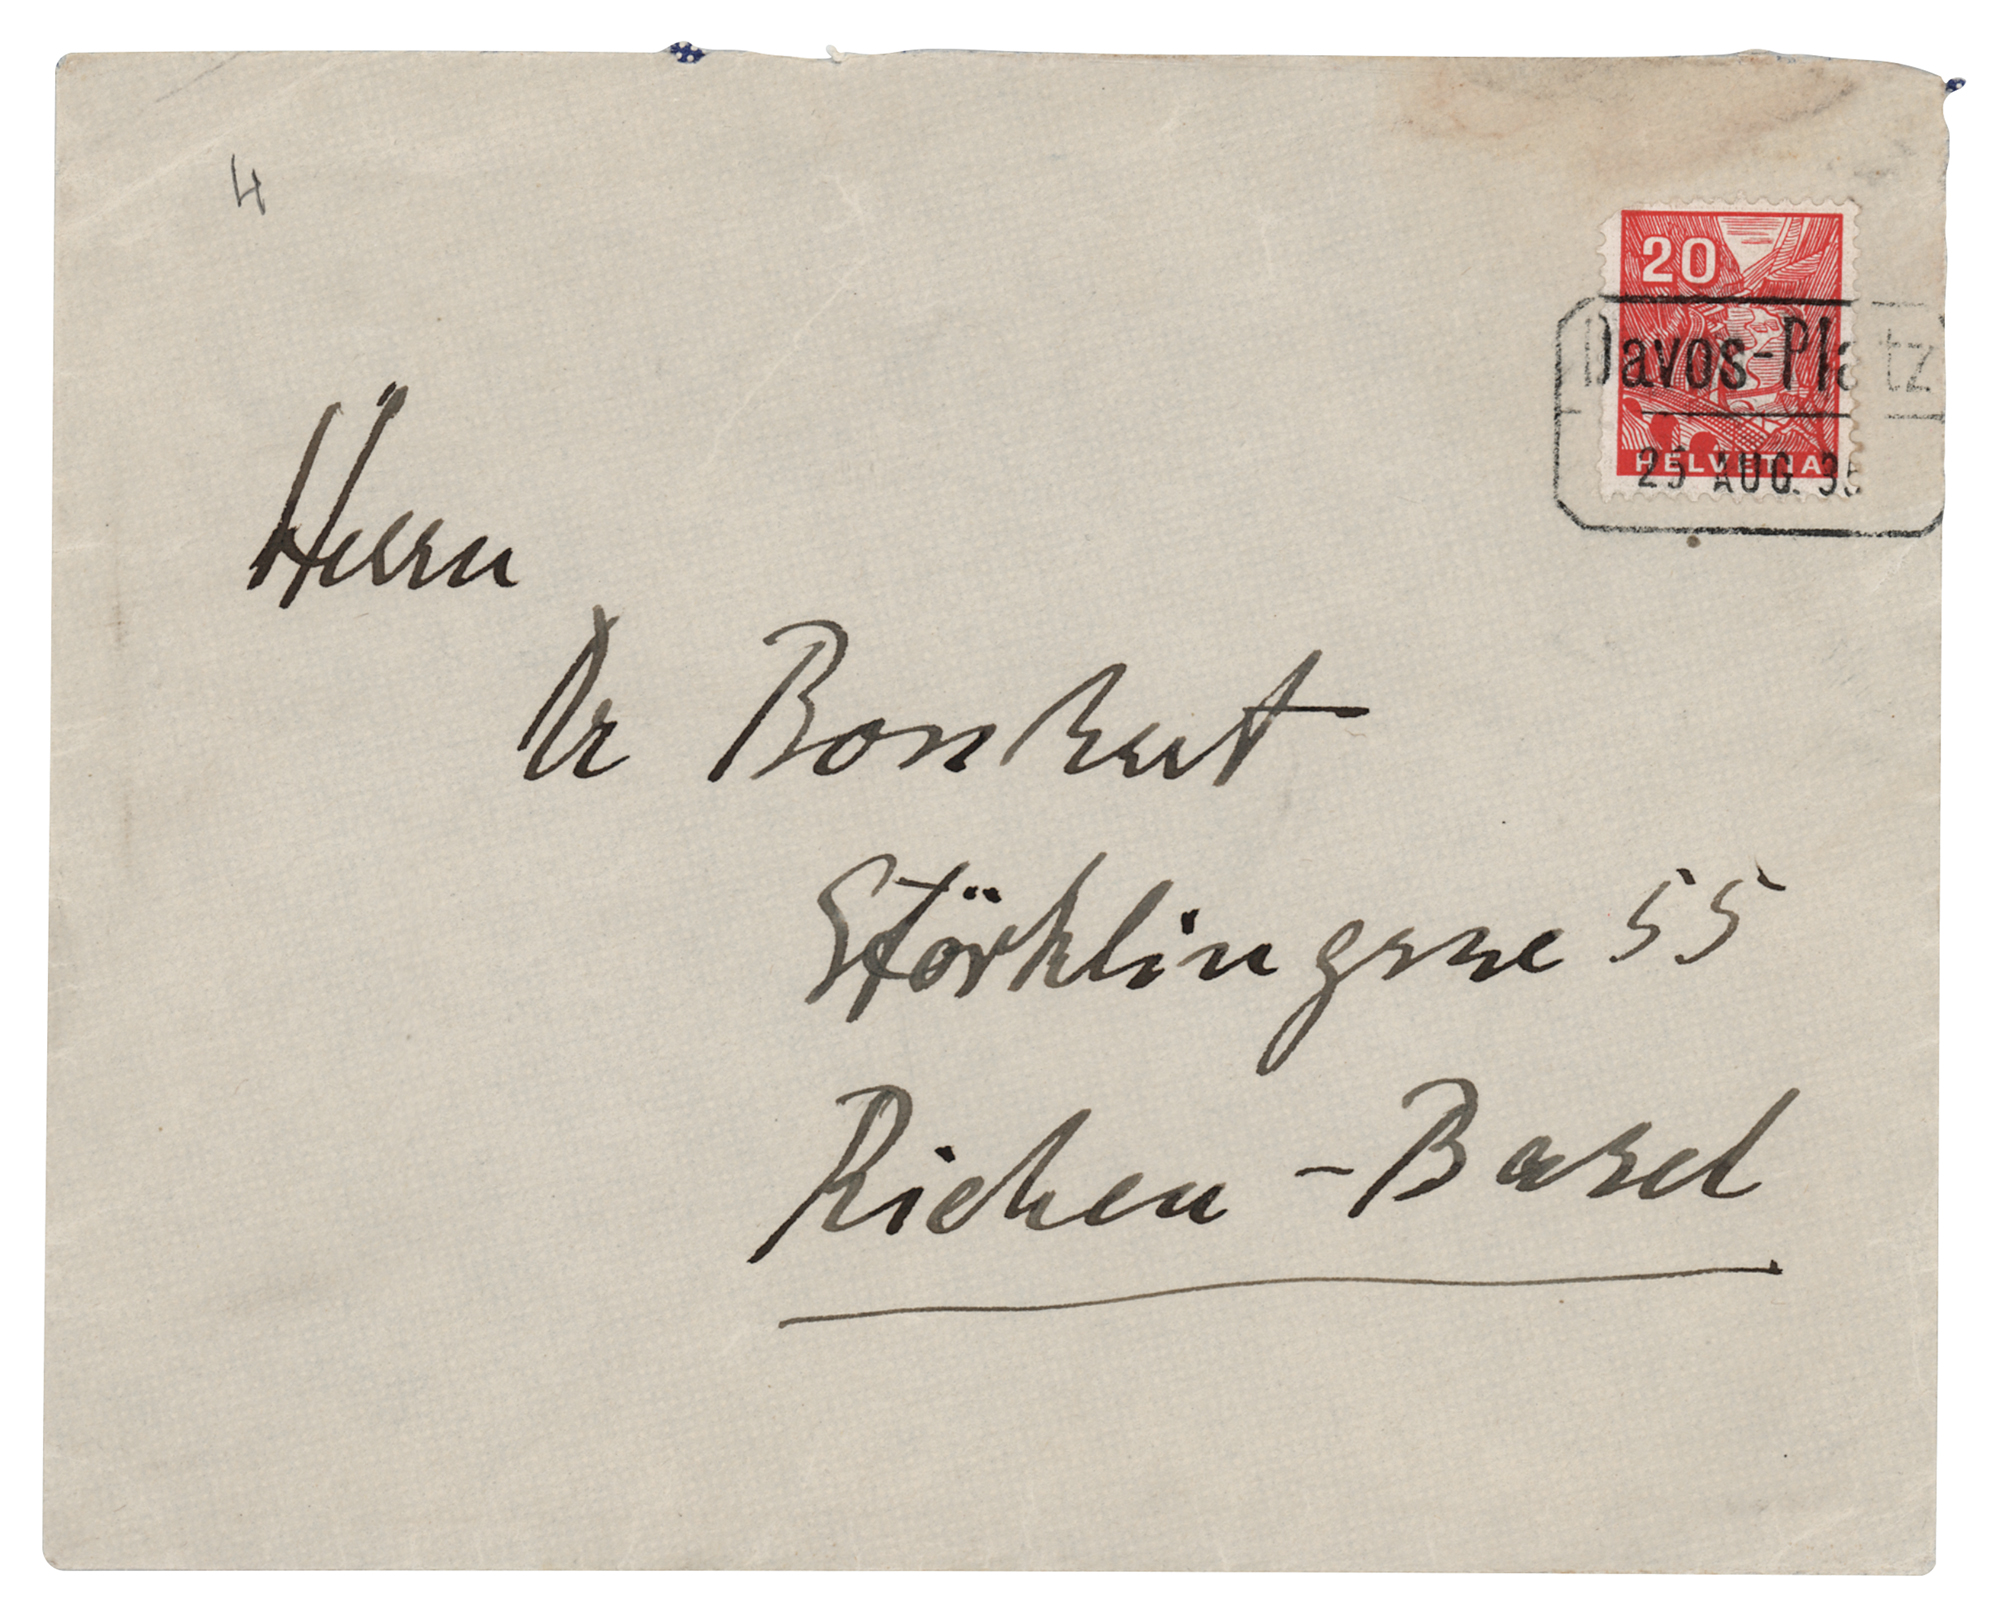 4
20
Davos-Platz
HELVETIA
25 AUG. 35
Herrn
Dr Bonhert
Störklingasse 55
Riehen - Basel